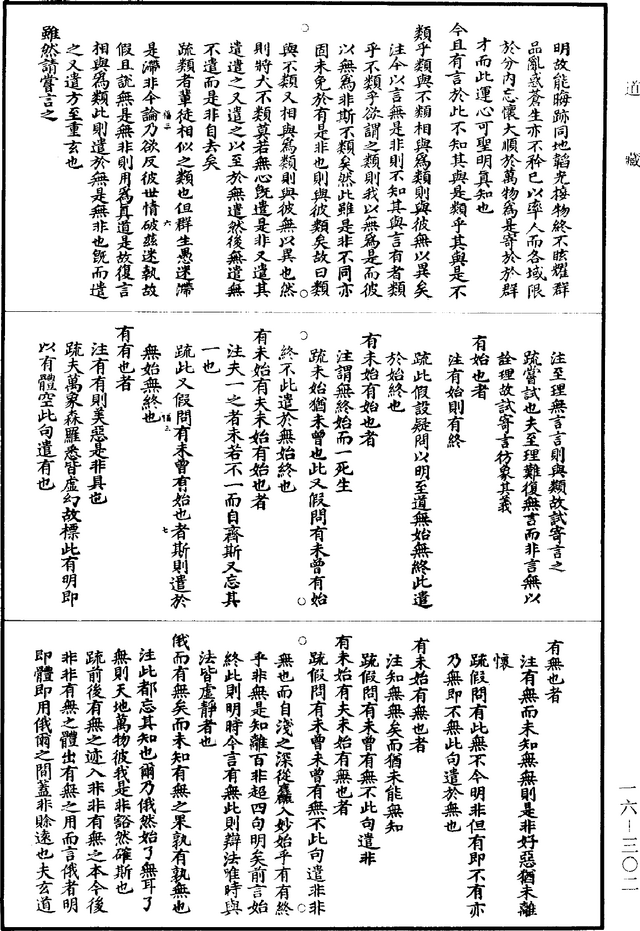 道藏
明故能晦跡同地韜光接物終不眩耀群
品亂惑蒼生亦不矜已以率人而各域限
於分内忘懷大順於萬物為是寄於於群
才而此運心可聖明真知也
今且有言於此不知其與是類乎其與是不
類乎類與不類相與爲類則與彼無以異矣
注今以言無是非則不知其與言有者類
乎不類乎欲謂之類則我以無為是而彼
以無為非斯不類矣然此雖是非不同亦
固未免於有是非也則與彼類矣故曰類
與不類又相與爲類則與彼無以異也然
則將大不類莫若無心旣遣是非又遣其
遣遣之又遣之以至於無遣然後無遣無
不遣而是非自去矣
疏類者輩徒相似之類也但群生愚迷滯
是滯非今論乃欲反彼世情破兹迷執故
假且說無是無非則用爲真道是故復言
相與爲類此則遣於無是無非也旣而遣
之又遣方至重玄也
雖然請嘗言之
注至理無言言則與類故試寄言之
疏嘗試也夫至理難復無言而非言無以
詮理故試寄言彷象其義
有始也者
注有始則有終
疏此假設疑問以明至道無始無終此遣
於始終也
有未始有始也者
注謂無終始而一死生
疏未始猶未曾也此又假問有未曾有始
終不此遣於無始終也
有未始有夫未始有始也者
注夫一之者未若不一而自齊斯又忘其
一也
疏此又假問有未曾有始也者斯則遣於
無始無終也
有有也者
注有有則美惡是非具也
疏夫萬象森羅悉皆虚幻故標此有明即
以有體空此句遣有也
有無也者
注有無而未知無無則是非好惡猶未離
懷
疏假問有此無不今明非但有即不有亦
乃無即不無此句遣於無也
有未始有無也者
注知無無矣而猶未能無知
疏假問有未曾有無不此句遣非
有未始有夫未始有無也者
疏假問有未曾未曾有無不此句遣非非
無也而自淺之深從麤入妙始乎有有終
乎非無是知離百非超四句明矣前言始
終此則明時今言有無此則辯法唯時與
法皆虚靜者也
俄而有無矣而未知有無之果孰有孰無也
注此都忘其知也爾乃俄然始了無耳了
無則天地萬物彼我是非豁然確斯也
疏前後有無之迹入非非有無之本今後
非非有無之體出有無之用而言俄者明
即體即用俄爾之間蓋非賒遠也夫玄道
一六—三〇二